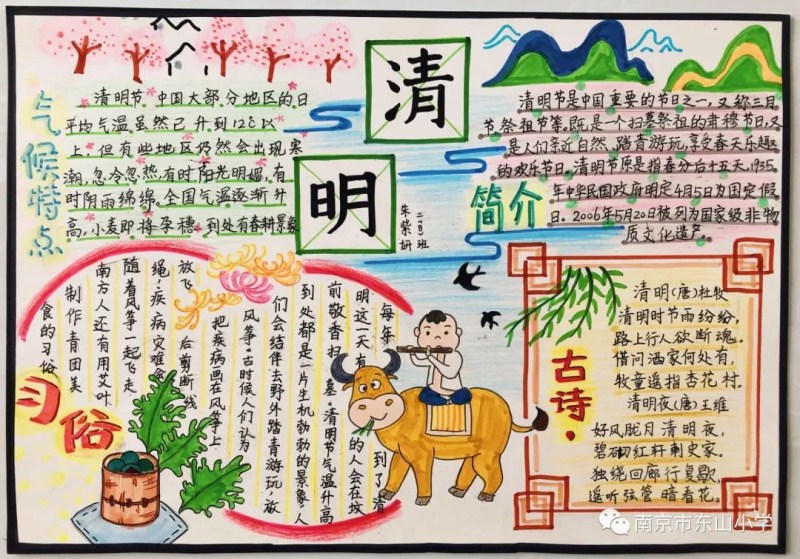 清
明
二(8)班
朱紫妍
气候特点
清明节.中国大部分地区的日
平均气温虽然已升到12℃以
上,但有些地区仍然会出现寒
潮,忽冷忽热,有时阳光明媚,有
时阴雨绵绵。全国气温逐渐升
高,小麦即将孕穗。到处有春耕景象
简介
清明节是中国重要的节日之一,又称三月
节、祭祖节等,既是一个扫墓祭祖的肃穆节日,又
是人们亲近自然、踏青游玩,享受春天乐趣
的欢乐节日。清明节原是指春分后十五天,1935
年中华民国政府明定4月5日为国定假
日。2006年5月20日被列为国家级非物
质文化遗产。
习俗
每年到了清
明这一天有的人会在坟
前敬香扫墓。清明节气温升高
到处都是一片生机勃勃的景象,人
们会结伴去野外踏青游玩,放
风筝。古时候人们认为
把疾病画在风筝上
放飞后剪断线
绳,疾病灾难会
随着风筝一起飞走
南方人还有用艾叶
制作青团美
食的习俗
古诗.
清明(唐)杜牧
清明时节雨纷纷,
路上行人欲断魂。
借问酒家何处有,
牧童遥指杏花村。
清明夜(唐)王维
好风胧月清明夜,
碧砌红轩刺史家。
独绕回廊行复歇,
遥听弦管暗看花。
南京市东山小学